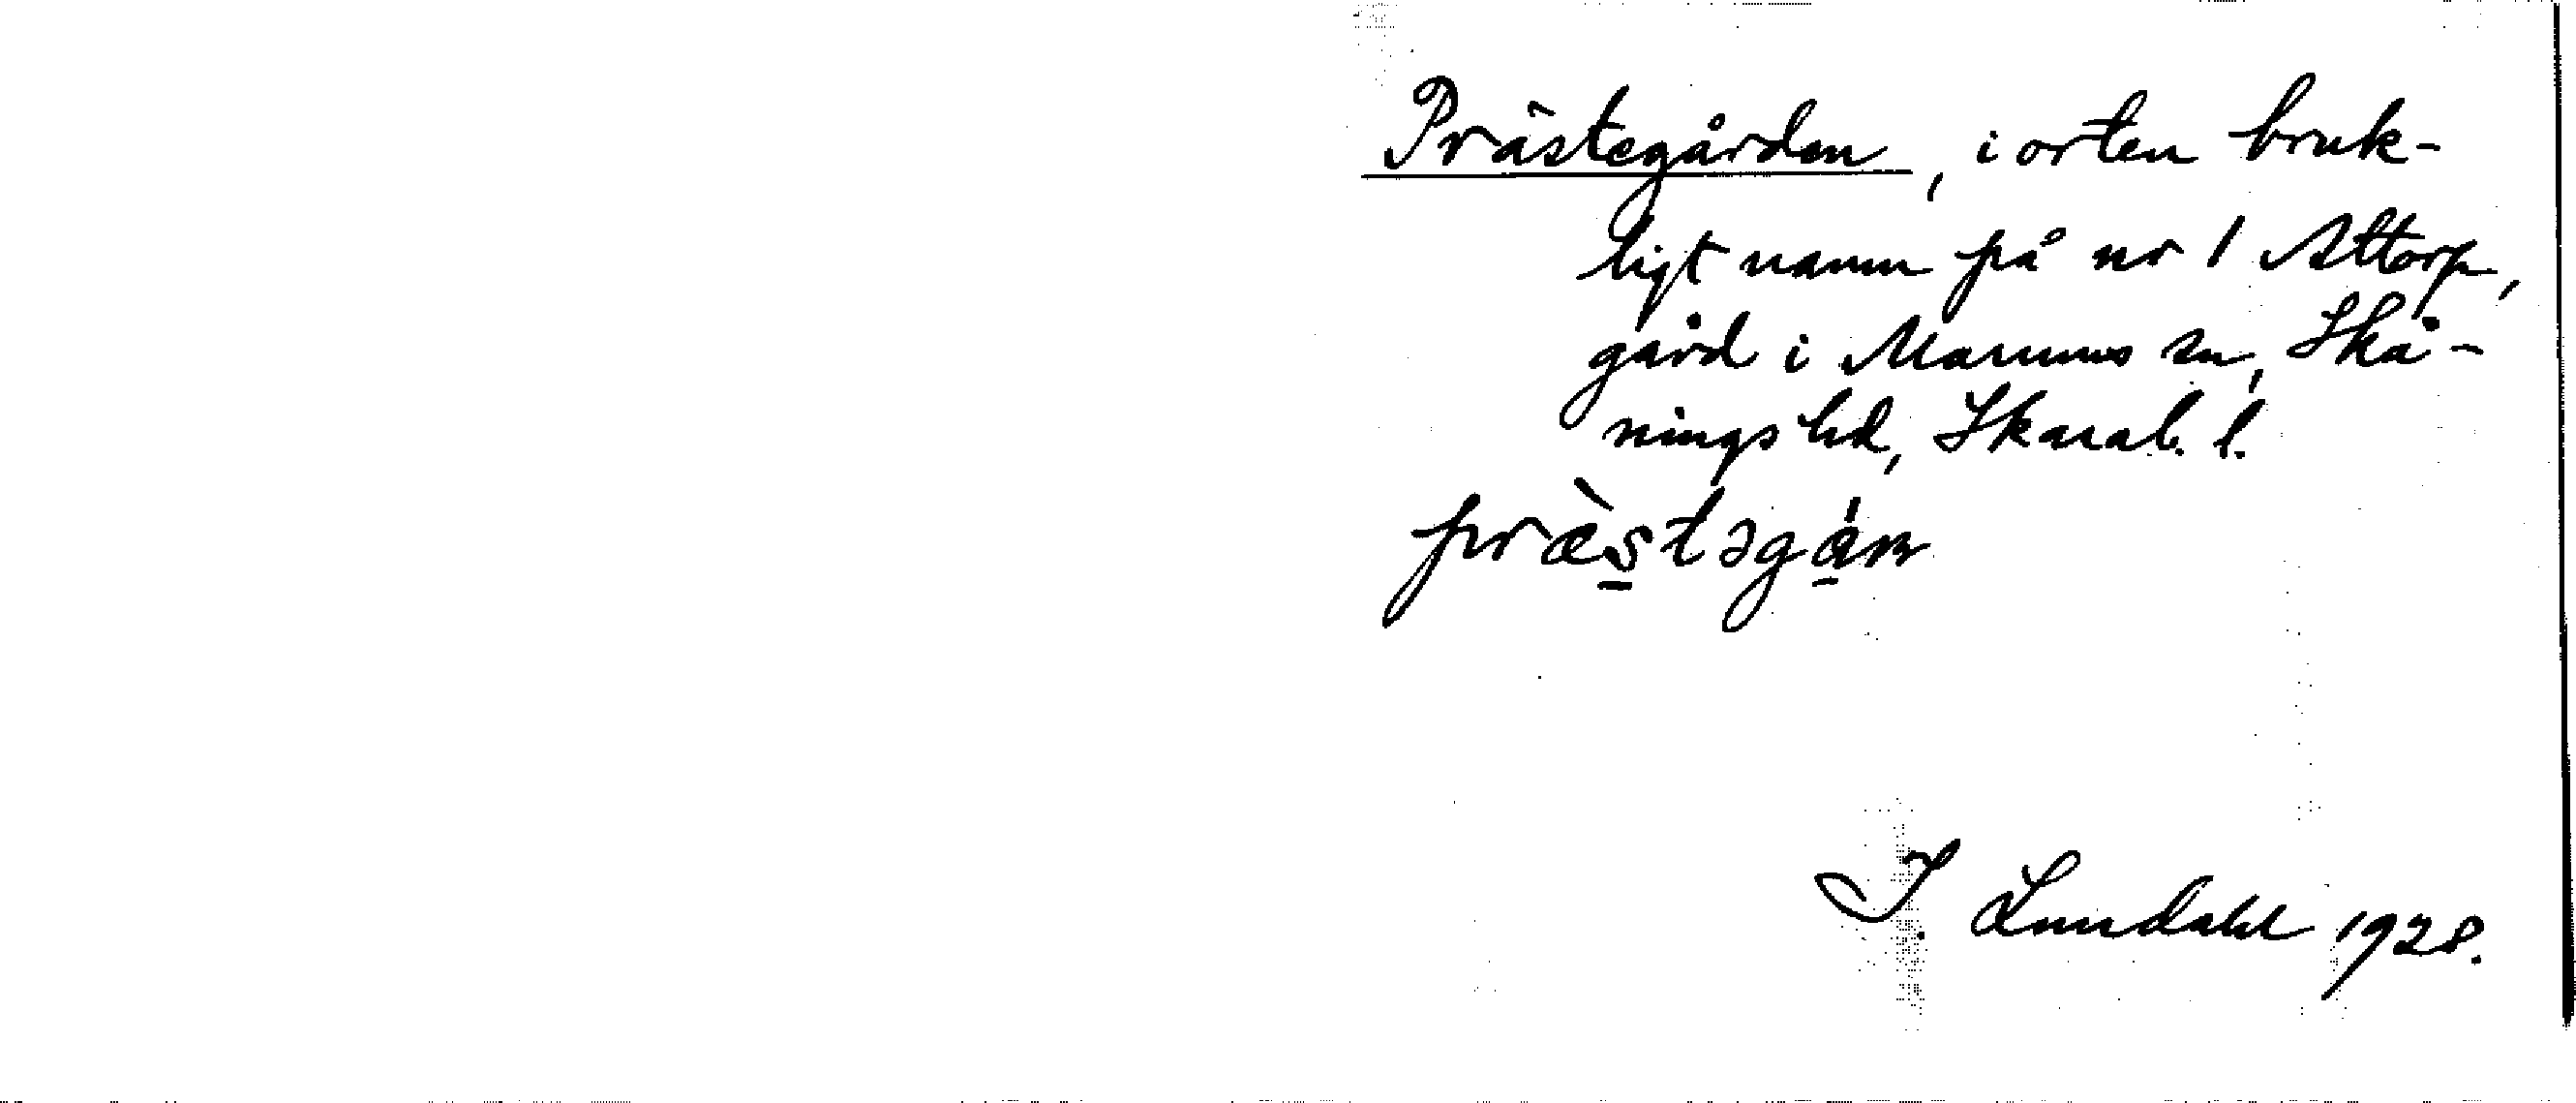 Prästegården, i orten bruk-
ligt namn på nr 1 Attorp,
gård i Marums sn, Skå-
nings hd, Skarab. l.
præ̀stəgá̱ɳ
I. Lundahl 1928.